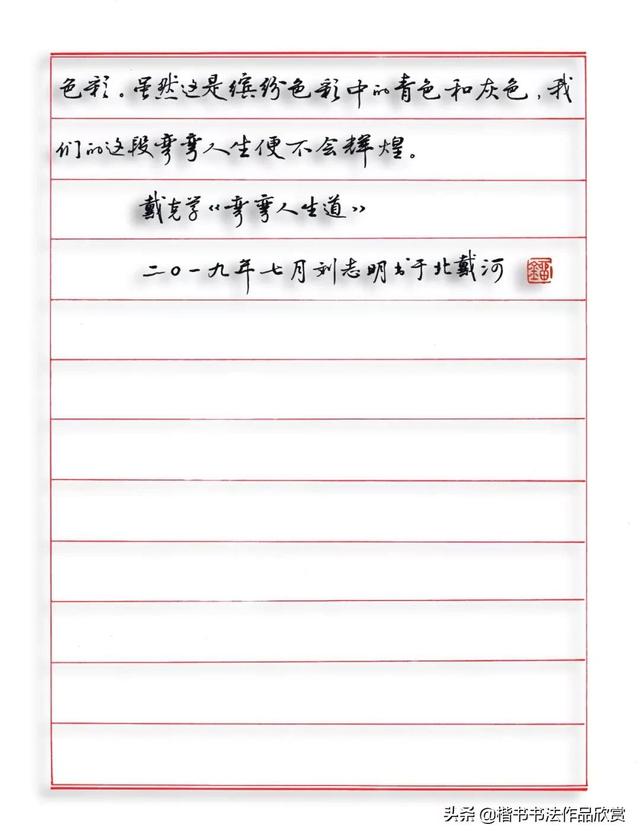 色彩。虽然这是缤纷色彩中的青色和灰色，我
们的这段弯弯人生便不会辉煌。
戴克学《弯弯人生道》
二〇一九年七月刘志明书于北戴河
头条@楷书书法作品欣赏